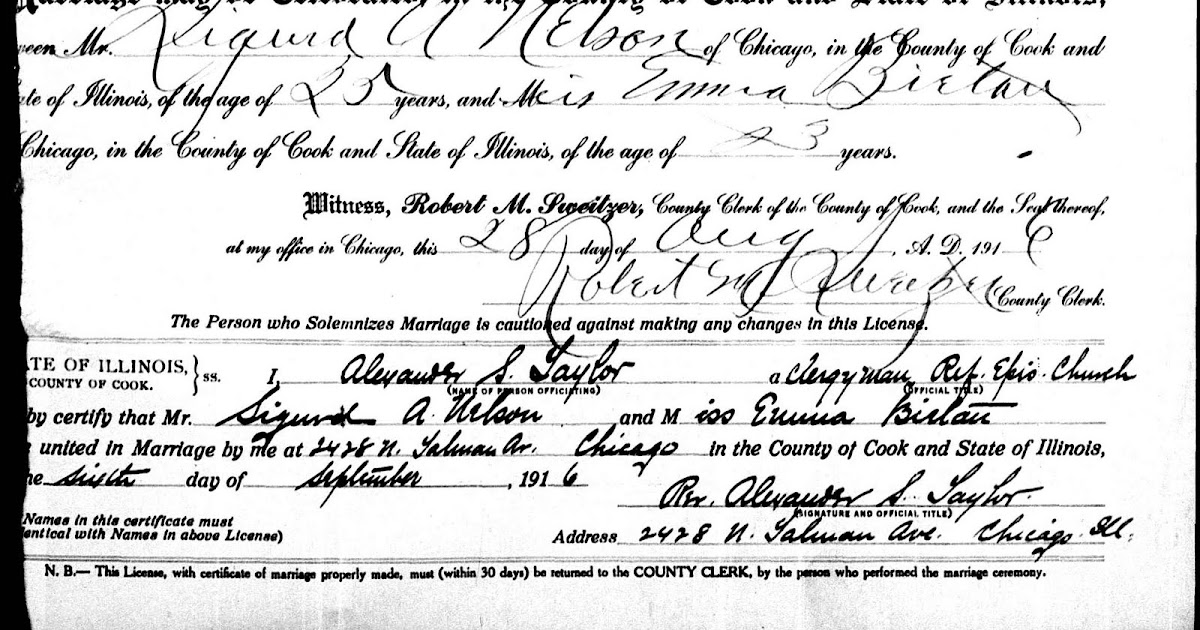 Marriage may be Celebrated, in the County of Cook and State of Illinois,
ween Mr. Sigurd A Nelson of Chicago, in the County of Cook and
ate of Illinois, of the age of 25 years, and Miss Emma Bielau
Chicago, in the County of Cook and State of Illinois, of the age of 23 years.
Witness, Robert M. Sweitzer, County Clerk of the County of Cook, and the Seal thereof,
at my office in Chicago, this 28 day of Aug , A. D. 191 6
Robert M Sweitzer County Clerk.
The Person who Solemnizes Marriage is cautioned against making any changes in this License.
ATE OF ILLINOIS,
COUNTY OF COOK. } ss. I, Alexander S. Taylor a Clergyman Ref. Epis. Church
(NAME OF PERSON OFFICIATING) (OFFICIAL TITLE)
by certify that Mr. Sigurd A. Nelson and M iss Emma Bielau
united in Marriage by me at 2428 N. Talman Av. Chicago in the County of Cook and State of Illinois,
he sixth day of September , 191 6
Rev. Alexander S. Taylor.
(SIGNATURE AND OFFICIAL TITLE)
Names in this certificate must
entical with Names in above License)
Address 2428 N. Talman Ave. Chicago. Ill.
N. B.— This License, with certificate of marriage properly made, must (within 30 days) be returned to the COUNTY CLERK, by the person who performed the marriage ceremony.